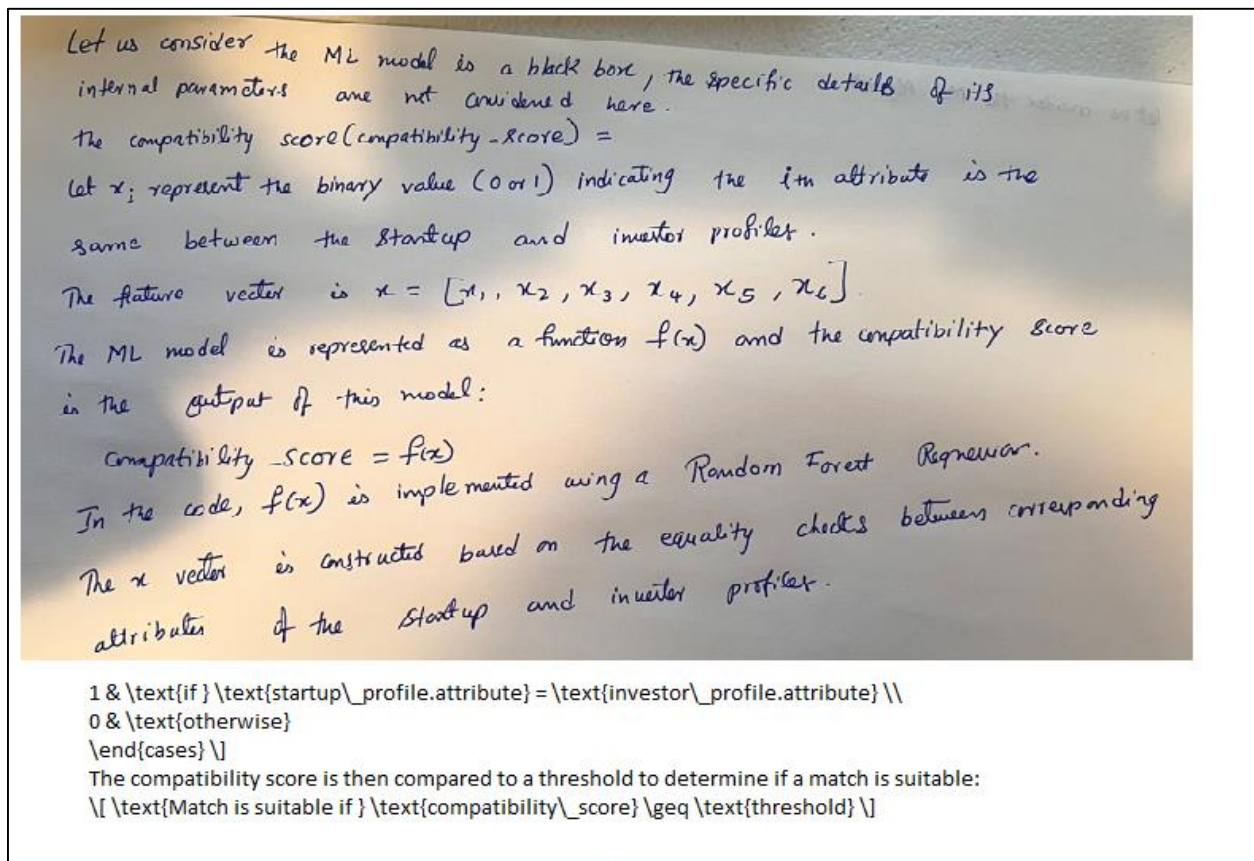 Let us consider the ML model is a black box, the specific details of its
internal parameters are not considered here.
The compatibility score (compatibility_score) =
Let xi represent the binary value (0 or 1) indicating the ith attribute is the
same between the startup and investor profiles.
The feature vector is x = [x1, x2, x3, x4, x5, x6]
The ML model is represented as a function f(x) and the compatibility score
is the output of this model:
Compatibility_score = f(x)
In the code, f(x) is implemented using a Random Forest Regressor.
The x vector is constructed based on the equality checks between corresponding
attributes of the startup and investor profiles.
1 & \text{if } \text{startup\_profile.attribute} = \text{investor\_profile.attribute} \\
0 & \text{otherwise}
\end{cases} \]
The compatibility score is then compared to a threshold to determine if a match is suitable:
\[ \text{Match is suitable if } \text{compatibility\_score} \geq \text{threshold} \]